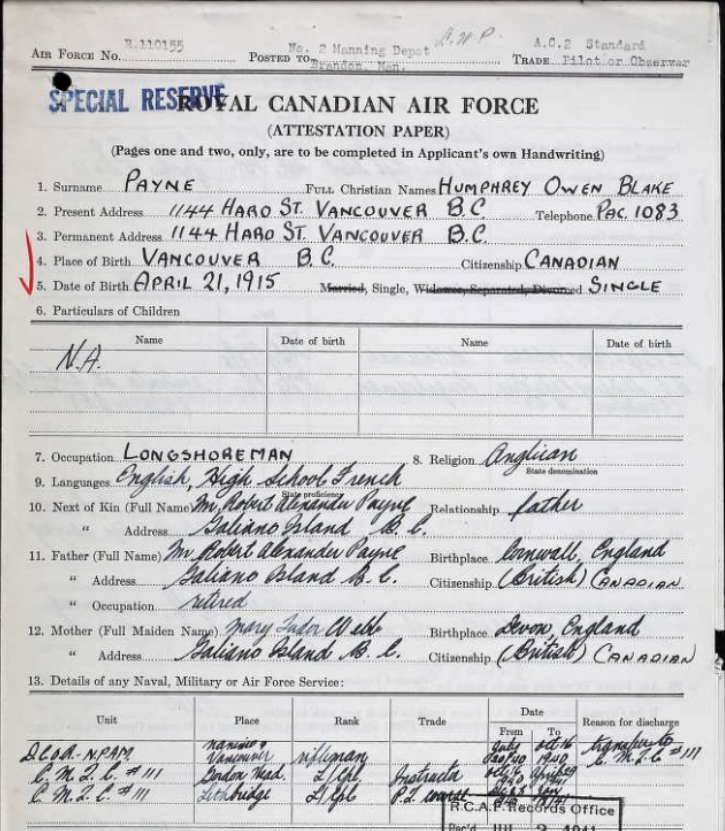 R.110155 No. 2 Manning Depot A.C.2 Standard
AIR FORCE No. POSTED TO Brandon, Man. TRADE Pilot or Observer
SPECIAL RESERVE
ROYAL CANADIAN AIR FORCE
(ATTESTATION PAPER)
(Pages one and two, only, are to be completed in Applicant's own Handwriting)
1. Surname PAYNE FULL Christian Names HUMPHREY OWEN BLAKE
2. Present Address 1144 HARO ST. VANCOUVER B.C. Telephone PAC. 1083
3. Permanent Address 1144 HARO ST. VANCOUVER B.C.
4. Place of Birth VANCOUVER B.C. Citizenship CANADIAN
5. Date of Birth APRIL 21, 1915 Married, Single, Widower, Separated, Divorced SINGLE
6. Particulars of Children
Name Date of birth Name Date of birth
N.A.
7. Occupation LONGSHOREMAN 8. Religion Anglican
State denomination
9. Languages English, High School French
State proficiency
10. Next of Kin (Full Name) Mr. Robert Alexander Payne Relationship father
" Address Galiano Island B.C.
11. Father (Full Name) Mr Robert Alexander Payne Birthplace Cornwall, England
" Address Galiano Island B.C. Citizenship (British) CANADIAN
" Occupation retired
12. Mother (Full Maiden Name) Mary Tudor Webb Birthplace Devon, England
" Address Galiano Island B.C. Citizenship (British) CANADIAN
13. Details of any Naval, Military or Air Force Service:
Unit Place Rank Trade Date Reason for discharge
From To
D.C.O.R. - N.P.A.M. Nanaimo & Vancouver rifleman July 1940 Oct 16 1940 transfer to C.M.T.C. #111
C.M.T.C. #111 Gordon Head. L/Cpl. Instructor
C.M.T.C. #111 Lethbridge L/Cpl P.T. course
R.C.A.F. Records Office
Rec'd